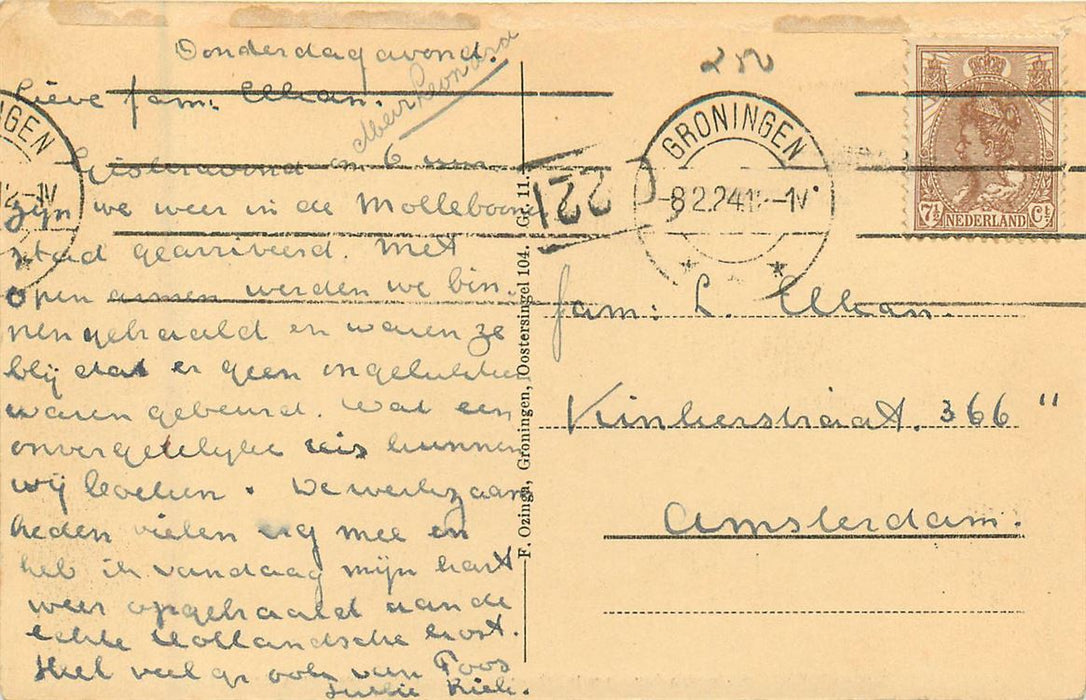 Donderdagavond.
Lieve fam: Elkan.
Gisteravond om 6 uur
zijn we weer in de Molleboon
stad gearriveerd. Met
open armen werden we bin-
nengehaald en waren ze
blij dat er geen ongelukken
waren gebeurd. Wat een
onvergetelijke reis kunnen
wij boeken. De werkzaam
heden vielen erg mee en
heb ik vandaag mijn hart
weer opgehaald aan de
echte Hollandsche kost.
Heel veel gr ook van Toos
Jullie
F. Ozinga, Groningen, Oostersingel 104. Gr. 11.
221
GRONINGEN
-8 2.24 12-1V
NGEN
12-1V
7½ NEDERLAND Ct
fam: L. Elkan.
Kinkerstraat. 366 "
Amsterdam.